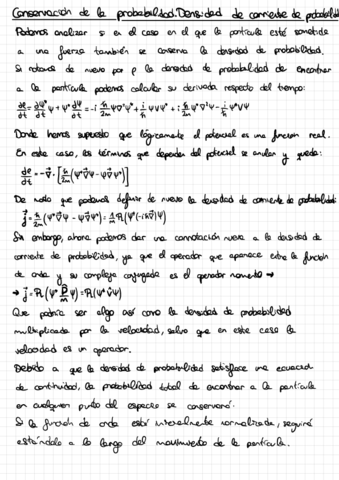 Conservación de la probabilidad. Densidad de corriente de probabilidad
Podemos analizar si en el caso en el que la partícula esté sometida
a una fuerza también se conserva la densidad de probabilidad.
Si notamos de nuevo por ρ la densidad de probabilidad de encontrar
a la partícula podemos calcular su derivada respecto del tiempo:
∂ρ/∂t = ∂ψ*/∂t ψ + ψ* ∂ψ/∂t = -i ħ/2m ψ∇²ψ* + i/ħ ψVψ* + i ħ/2m ψ*∇²ψ - i/ħ ψ*Vψ
Donde hemos supuesto que lógicamente el potencial es una función real.
En este caso, los términos que dependen del potencial se anulan y queda:
∂ρ/∂t = -∇⃗·[ħ/2mi (ψ*∇⃗ψ - ψ∇⃗ψ*)]
De modo que podemos definir de nuevo la densidad de corriente de probabilidad:
j⃗ = ħ/2mi (ψ*∇⃗ψ - ψ∇⃗ψ*) = 1/m ℜ(ψ*(-iħ∇⃗)ψ)
Sin embargo, ahora podemos dar una connotación nueva a la densidad de
corriente de probabilidad, ya que el operador que aparece entre la función
de onda y su compleja conjugada es el operador momento →
→ j⃗ = ℜ(ψ* p̂/m ψ) = ℜ(ψ* v̂ ψ)
Que podría ser algo así como la densidad de probabilidad
multiplicada por la velocidad, salvo que en este caso la
velocidad es un operador.
Debido a que la densidad de probabilidad satisface una ecuación
de continuidad, la probabilidad total de encontrar a la partícula
en cualquier punto del espacio se conservará.
Si la función de onda está inicialmente normalizada, seguirá
estándolo a lo largo del movimiento de la partícula.